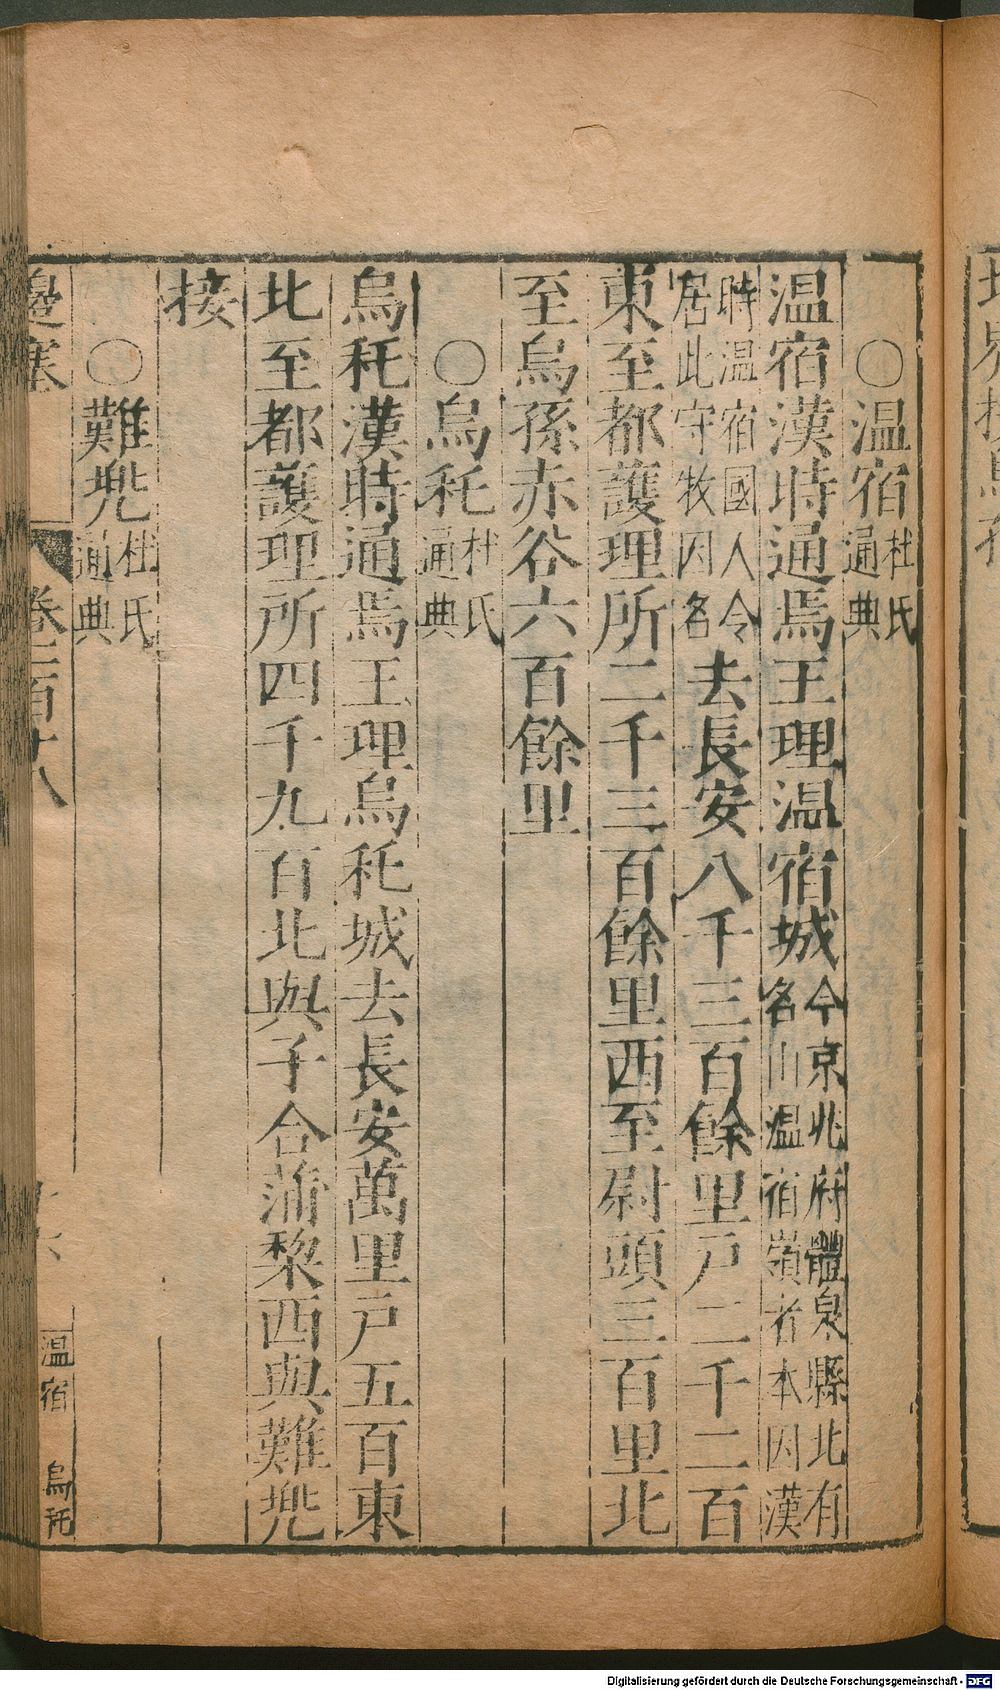 ○温宿杜氏通典
温宿漢時通焉王理温宿城今京兆府醴泉縣北有名山温宿嶺者本因漢
時温宿國人令居此守牧因名去長安八千三百餘里戶二千二百
東至都護理所二千三百餘里西至尉頭三百里北
至烏孫赤谷六百餘里
○烏秅杜氏通典
烏秅漢時通焉王理烏秅城去長安萬里戶五百東
北至都護理所四千九百北與子合蒲黎西與難兜
接
○難兜杜氏通典
邊塞 卷二百十八
温宿 烏秅
Digitalisierung gefördert durch die Deutsche Forschungsgemeinschaft - DFG